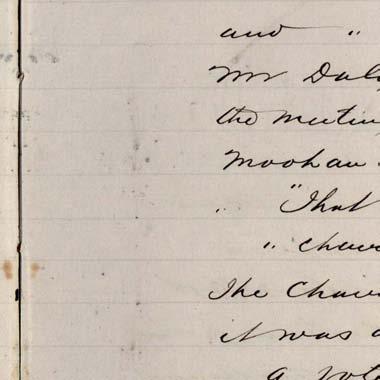 and "
Mr Daly
the meeting
Moohan
" "That
" chair
The Chair
it was
a vote